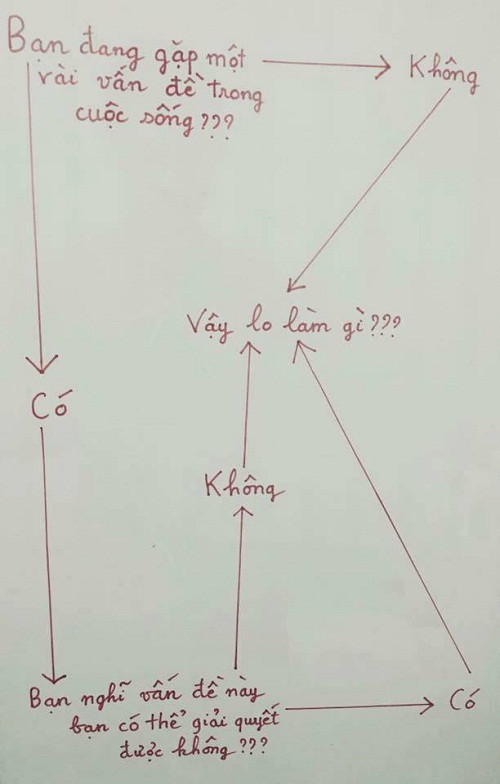 Bạn đang gặp một
vài vấn đề trong
cuộc sống???
Không
Vậy lo làm gì???
Có
Không
Bạn nghĩ vấn đề này
bạn có thể giải quyết
được không???
Có